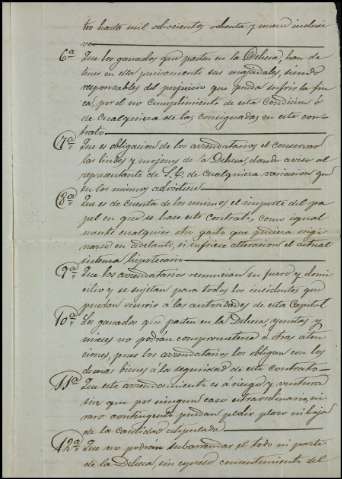 tos hasta mil ochocientos ochenta y nueve inclusi
ve
6ª Que los ganados que pasten en la Dehesa, han de
tener en esta precisamente sus majadales, siendo
responsables del perjuicio que pueda sufrir la fin
ca, por el no cumplimiento de esta condicion ó
de cualquiera de las consignadas en este con
trato
7ª Que es obligacion de los arrendatarios el conservar
las lindes y mojones de la Dehesa, dando aviso al
representante de S. E. de cualquiera variacion que
en los mismos advirtiesen
8ª Que es de cuenta de los mismos el importe del pa
pel en que se hace este contrato, como igual
mente cualquier otro gasto que pudiera origi
narse en adelante, si sufriese alteracion el actual
sistema hipotecario
9ª Que los arrendatarios renuncian su fuero y domi
cilio y se sujetan para todos los incidentes que
puedan ocurrir á las autoridades de esta Capital
10ª Los ganados que pasten en la Dehesa, yuntas y
mieses no podrán comprometerse á otras aten
ciones, pues los arrendatarios los obligan con los
demas bienes á la seguridad de este contrato
11ª Que este arrendamiento es á riesgo y ventura
sin que por ningun caso extraordinario, ni
raro contingente puedan pedir plazo ni baja
de la cantidad estipulada
12ª Que no podrán subarrendar el todo ni parte
de la Dehesa, sin expreso consentimiento del